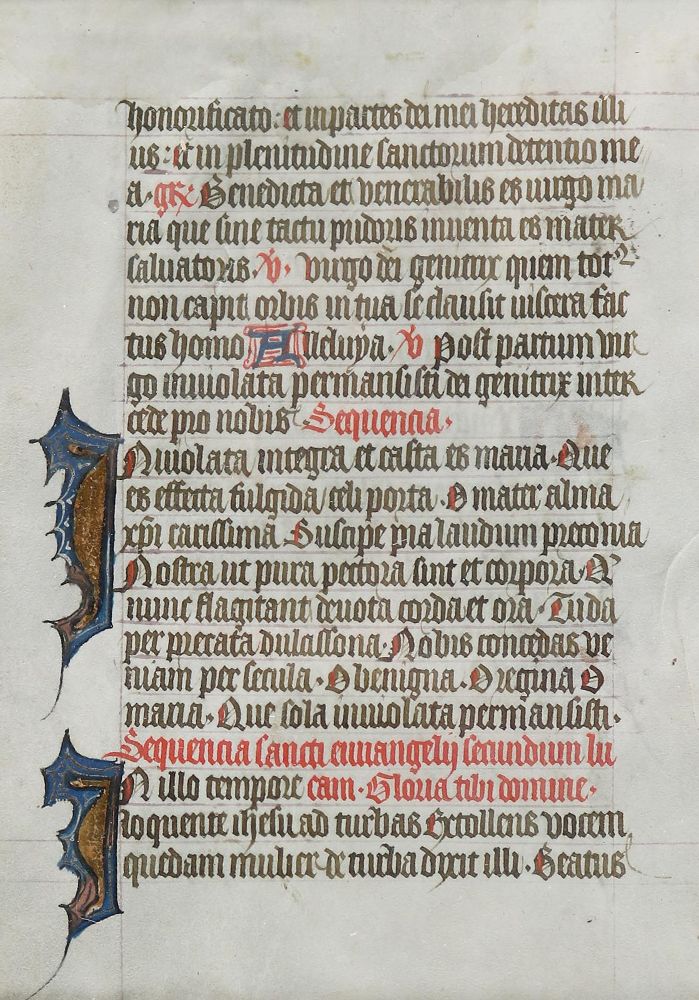 honorificato: et in partes dei mei hereditas illi
us: et in plenitudine sanctorum detentio me
a. gr̄. Benedicta et venerabilis es uirgo ma
ria que sine tactu pudoris inuenta es mater
saluatoris. V. Virgo dei genitrix quem tot⁹
non capit orbis in tua se clausit uiscera fac
tus homo Alleluya. V Post partum vir
go inuiolata permansisti dei genitrix inter
cede pro nobis Sequencia.
INuiolata integra et casta es maria. Que
es effecta fulgida celi porta. O mater alma
xp̄i carissima. Suscipe pia laudum preconia
Nostra ut pura pectora sint et corpora. Et
nunc flagitant deuota corda et ora. Tu da
per precata dulcissona. Nobis concedas ve
niam per secula. O benigna. O regina O
maria. Que sola inuiolata permansisti.
Sequencia sancti euuangelij secundum lu
IN illo tempore cam. Gloria tibi domine.
loquente ihesu ad turbas Extollens vocem
quedam mulier de turba dixit illi. Beatus